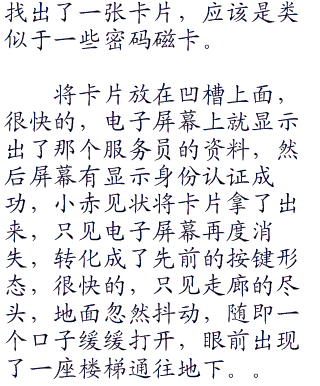 找出了一张卡片，应该是类
似于一些密码磁卡。
将卡片放在凹槽上面，
很快的，电子屏幕上就显示
出了那个服务员的资料，然
后屏幕有显示身份认证成
功，小赤见状将卡片拿了出
来，只见电子屏幕再度消
失，转化成了先前的按键形
态，很快的，只见走廊的尽
头，地面忽然抖动，随即一
个口子缓缓打开，眼前出现
了一座楼梯通往地下。。